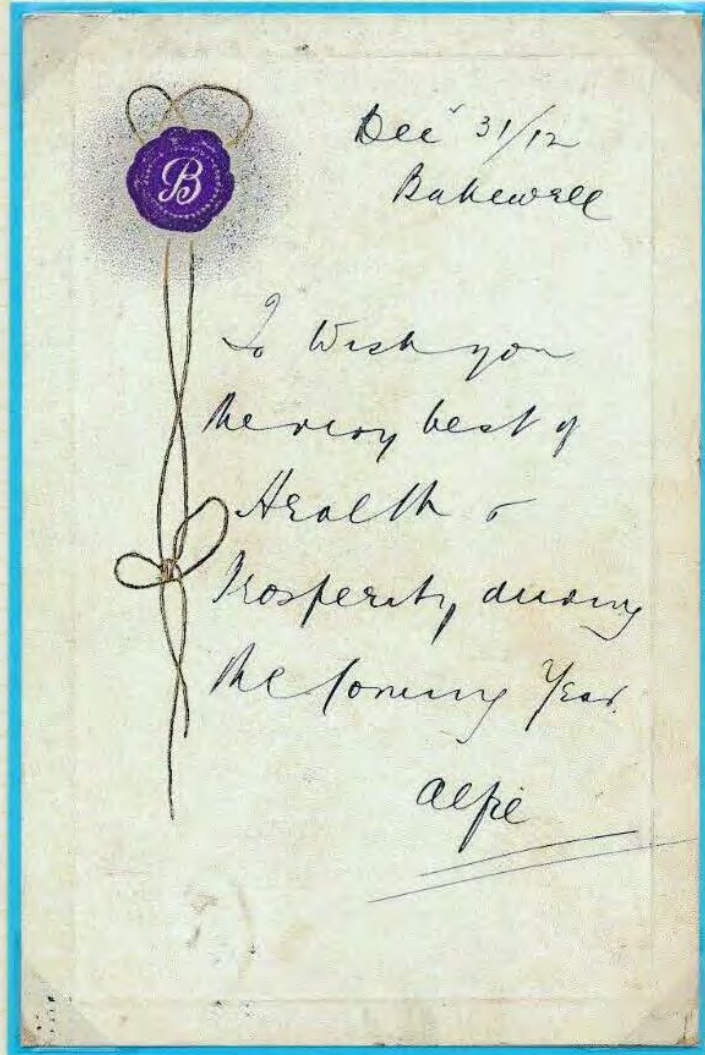 B
Decr 31/12
Bakewell
To Wish you
the very best of
Health &
Prosperity during
the Coming Year.
Alfie